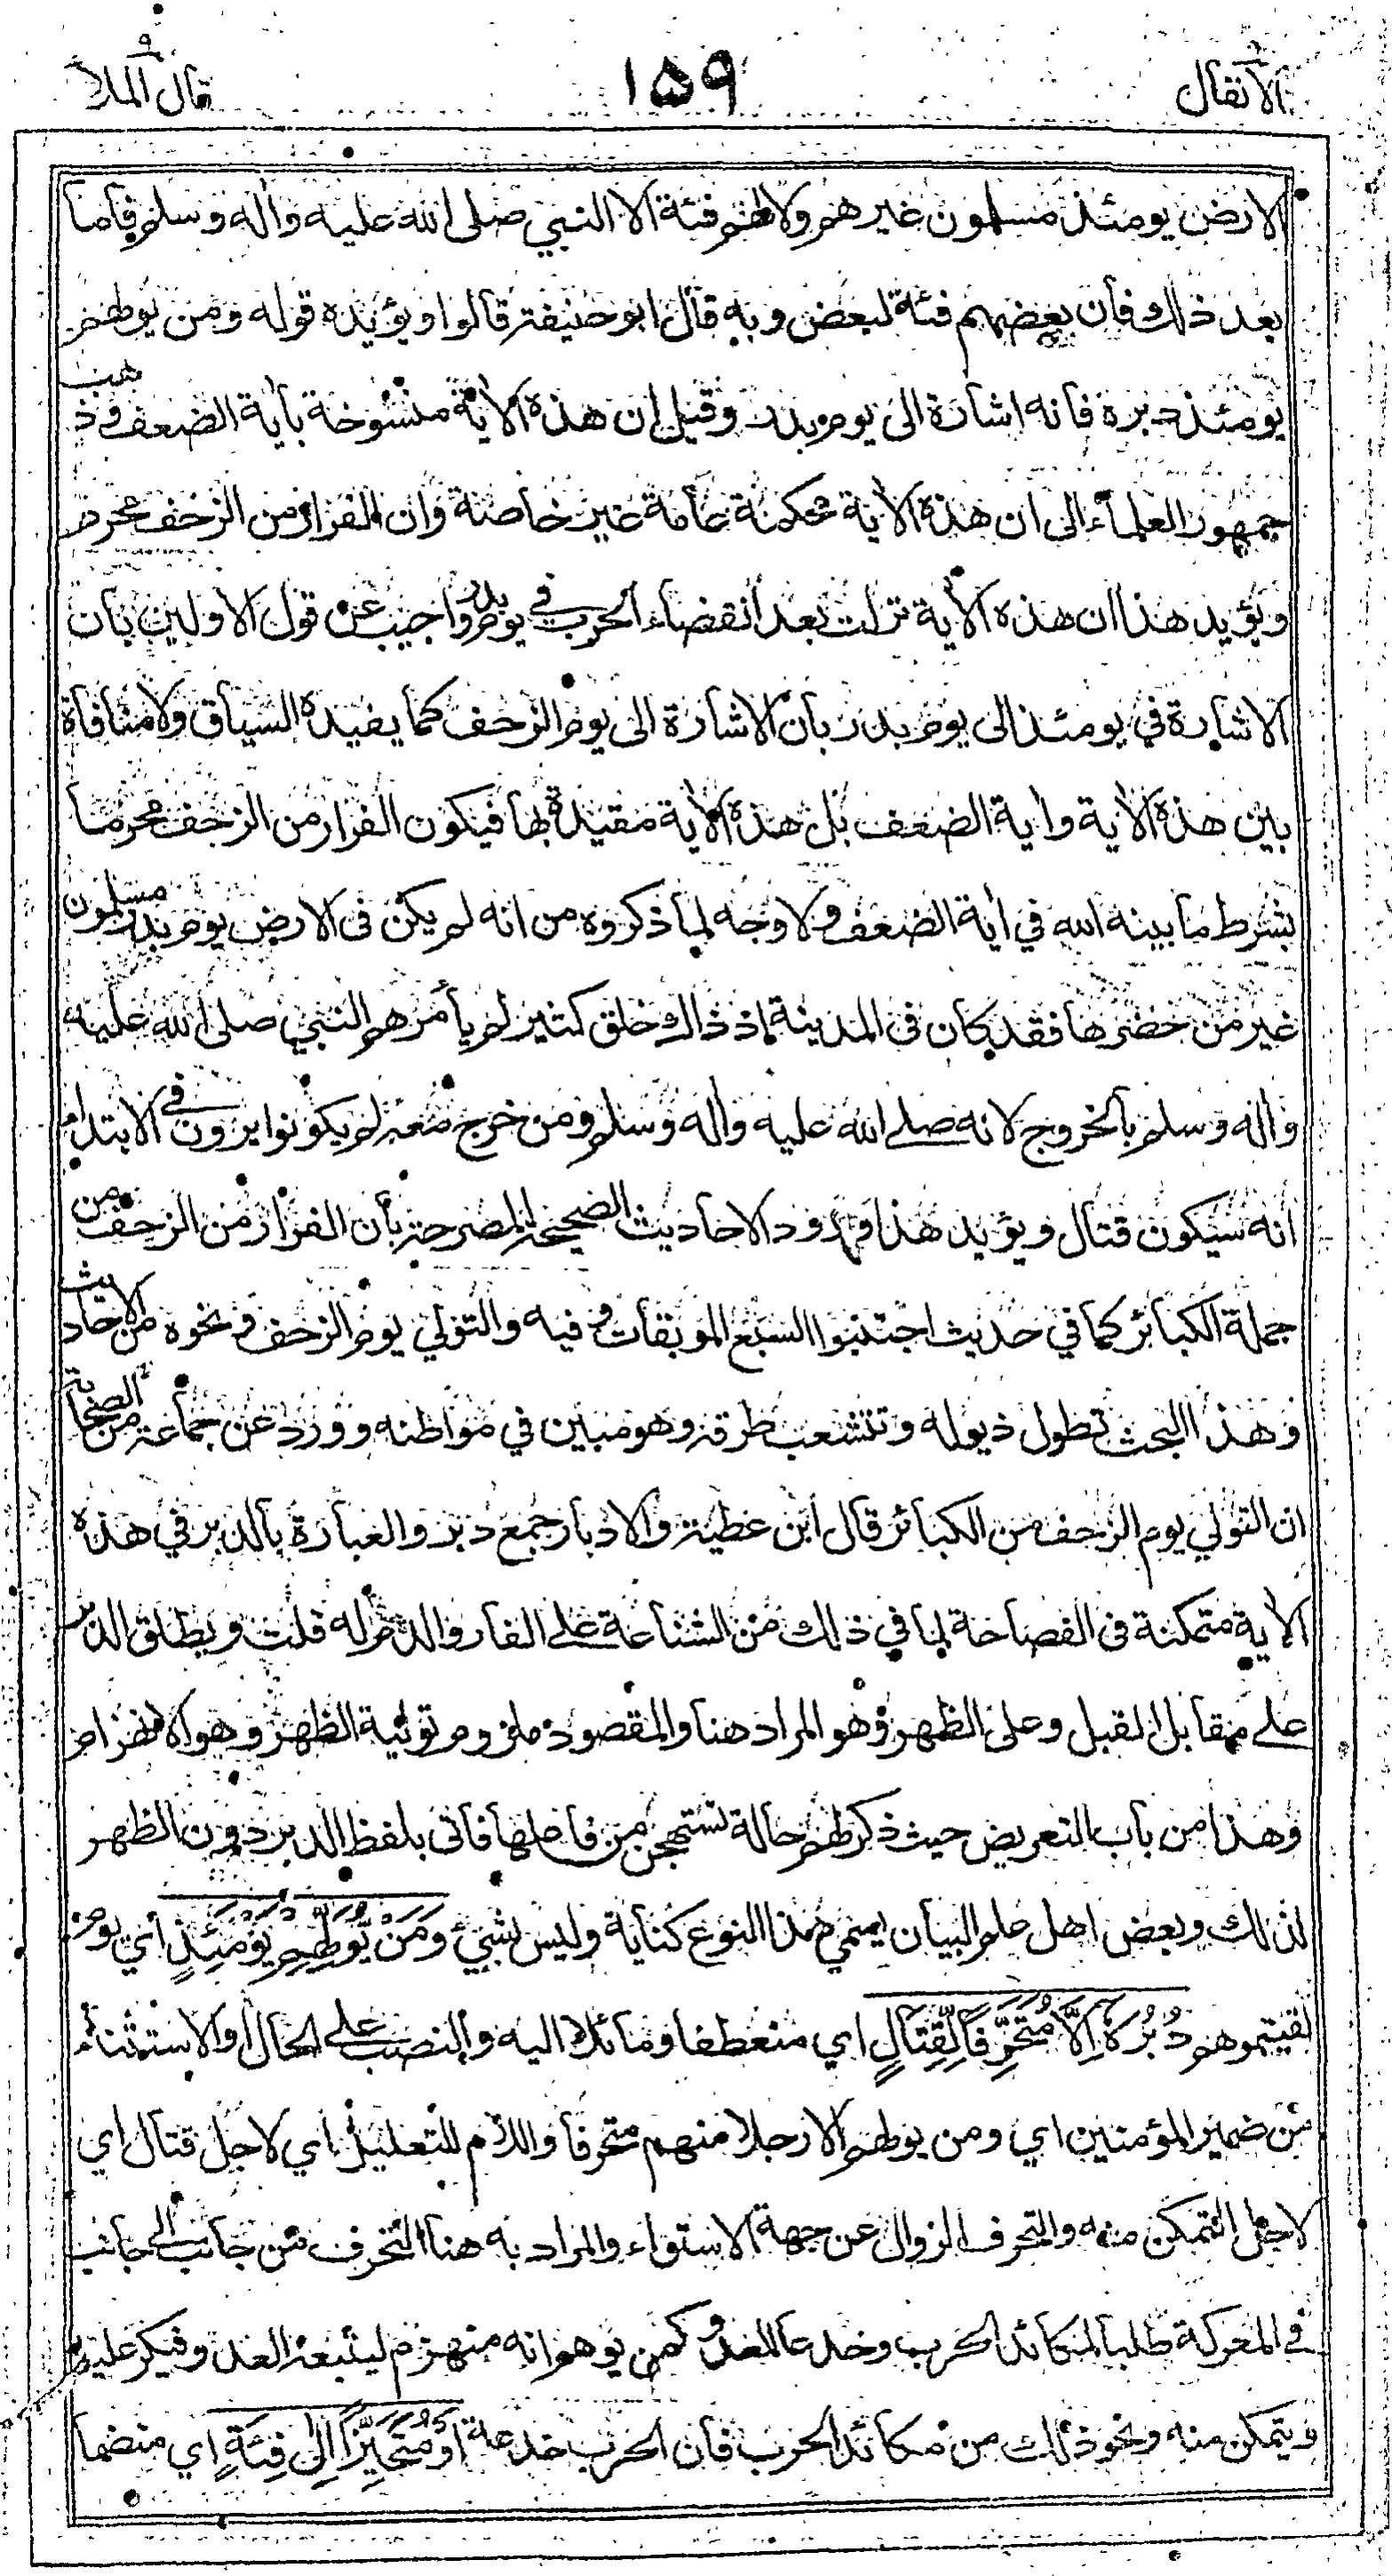 الانفال ١٥٩ قال الملأ ٩
الارض يومئذ مسلمون غيرهم ولا لهم فئة الا النبي صلى الله عليه واله وسلم فاما
بعد ذلك فان بعضهم فئة لبعض وبه قال ابو حنيفة قالوا ويؤيده قوله ومن يولهم
يومئذ دبره فانه اشارة الى يوم بدر وقيل ان هذه الأية منسوخة بأية الضعف وذهب
جمهور العلماء الى ان هذه الأية محكمة عامة غير خاصة وان الفرار من الزحف محرم
ويؤيد هذا ان هذه الأية نزلت بعد انقضاء الحرب في يوم بدر واجيب عن قول الاولين بان
الاشارة في يومئذ الى يوم بدر بان الاشارة الى يوم الزحف كما يفيده السياق ولا منافاة
بين هذه الأية واية الضعف بل هذه الأية مقيدة بها فيكون الفرار من الزحف محرما
بشرط ما بينه الله في أية الضعف ولا وجه لما ذكروه من انه لم يكن فى الارض يوم بدر مسلمون
غير من حضرها فقد كان فى المدينة اذ ذاك خلق كثير لم يأمرهم النبي صلى الله عليه
واله وسلم بالخروج لانه صلے الله عليه واله وسلم ومن خرج معه لم يكونوا يرون في الابتداء
انه سيكون قتال ويؤيد هذا ورود الاحاديث الصحيحة المصرحة بأن الفرار من الزحف من
جملة الكبائر كما في حديث اجتنبوا السبع الموبقات وفيه والتولي يوم الزحف ونحوه من الاحاديث
وهذا البحث تطول ذيوله وتتشعب طرقه وهو مبين في مواطنه وورد عن جماعة من الصحابة
ان التولي يوم الزحف من الكبائر قال ابن عطية والادبار جمع دبر والعبارة بالدبر في هذه
الأية متمكنة فى الفصاحة لما في ذلك من الشناعة علے الفار والذم له قلت ويطلق الدبر
علے مقابل القبل وعلى الظهر وهو المراد هنا والمقصود ملزوم تولية الظهر وهو الانهزام
وهذا من باب التعريض حيث ذكر لهم حالة تستهجن من فاعلها فاتى بلفظ الدبر دون الظهر
لذلك وبعض اهل علم البيان يسمي هذا النوع كناية وليس بشيئ وَمَنْ يُّوَلِّهِمْ يَوْمَئِذٍ اي يوم
لقيتموهم دُبُرَهٗ اِلَّا مُتَحَرِّفًا لِّقِتَالٍ اي منعطفا ومائلا اليه والنصب علے الحال او الاستثناء
من ضمير المؤمنين اي ومن يولهم الا رجلا منهم متحرفا واللام للتعليل اي لاجل قتال اي
لاجل التمكن منه والتحرف الزوال عن جهة الاستواء والمراد به هنا التحرف من جانب الى جانب
في المعركة طلبا لمكائد الحرب وخدعا للعدو كمن يوهم انه منهزم ليتبعه العدو فيكر عليه
ويتمكن منه ونحو ذلك من مكائد الحرب فان الحرب خدعة اَوْ مُتَحَيِّزًا اِلٰى فِئَةٍ اي منضما